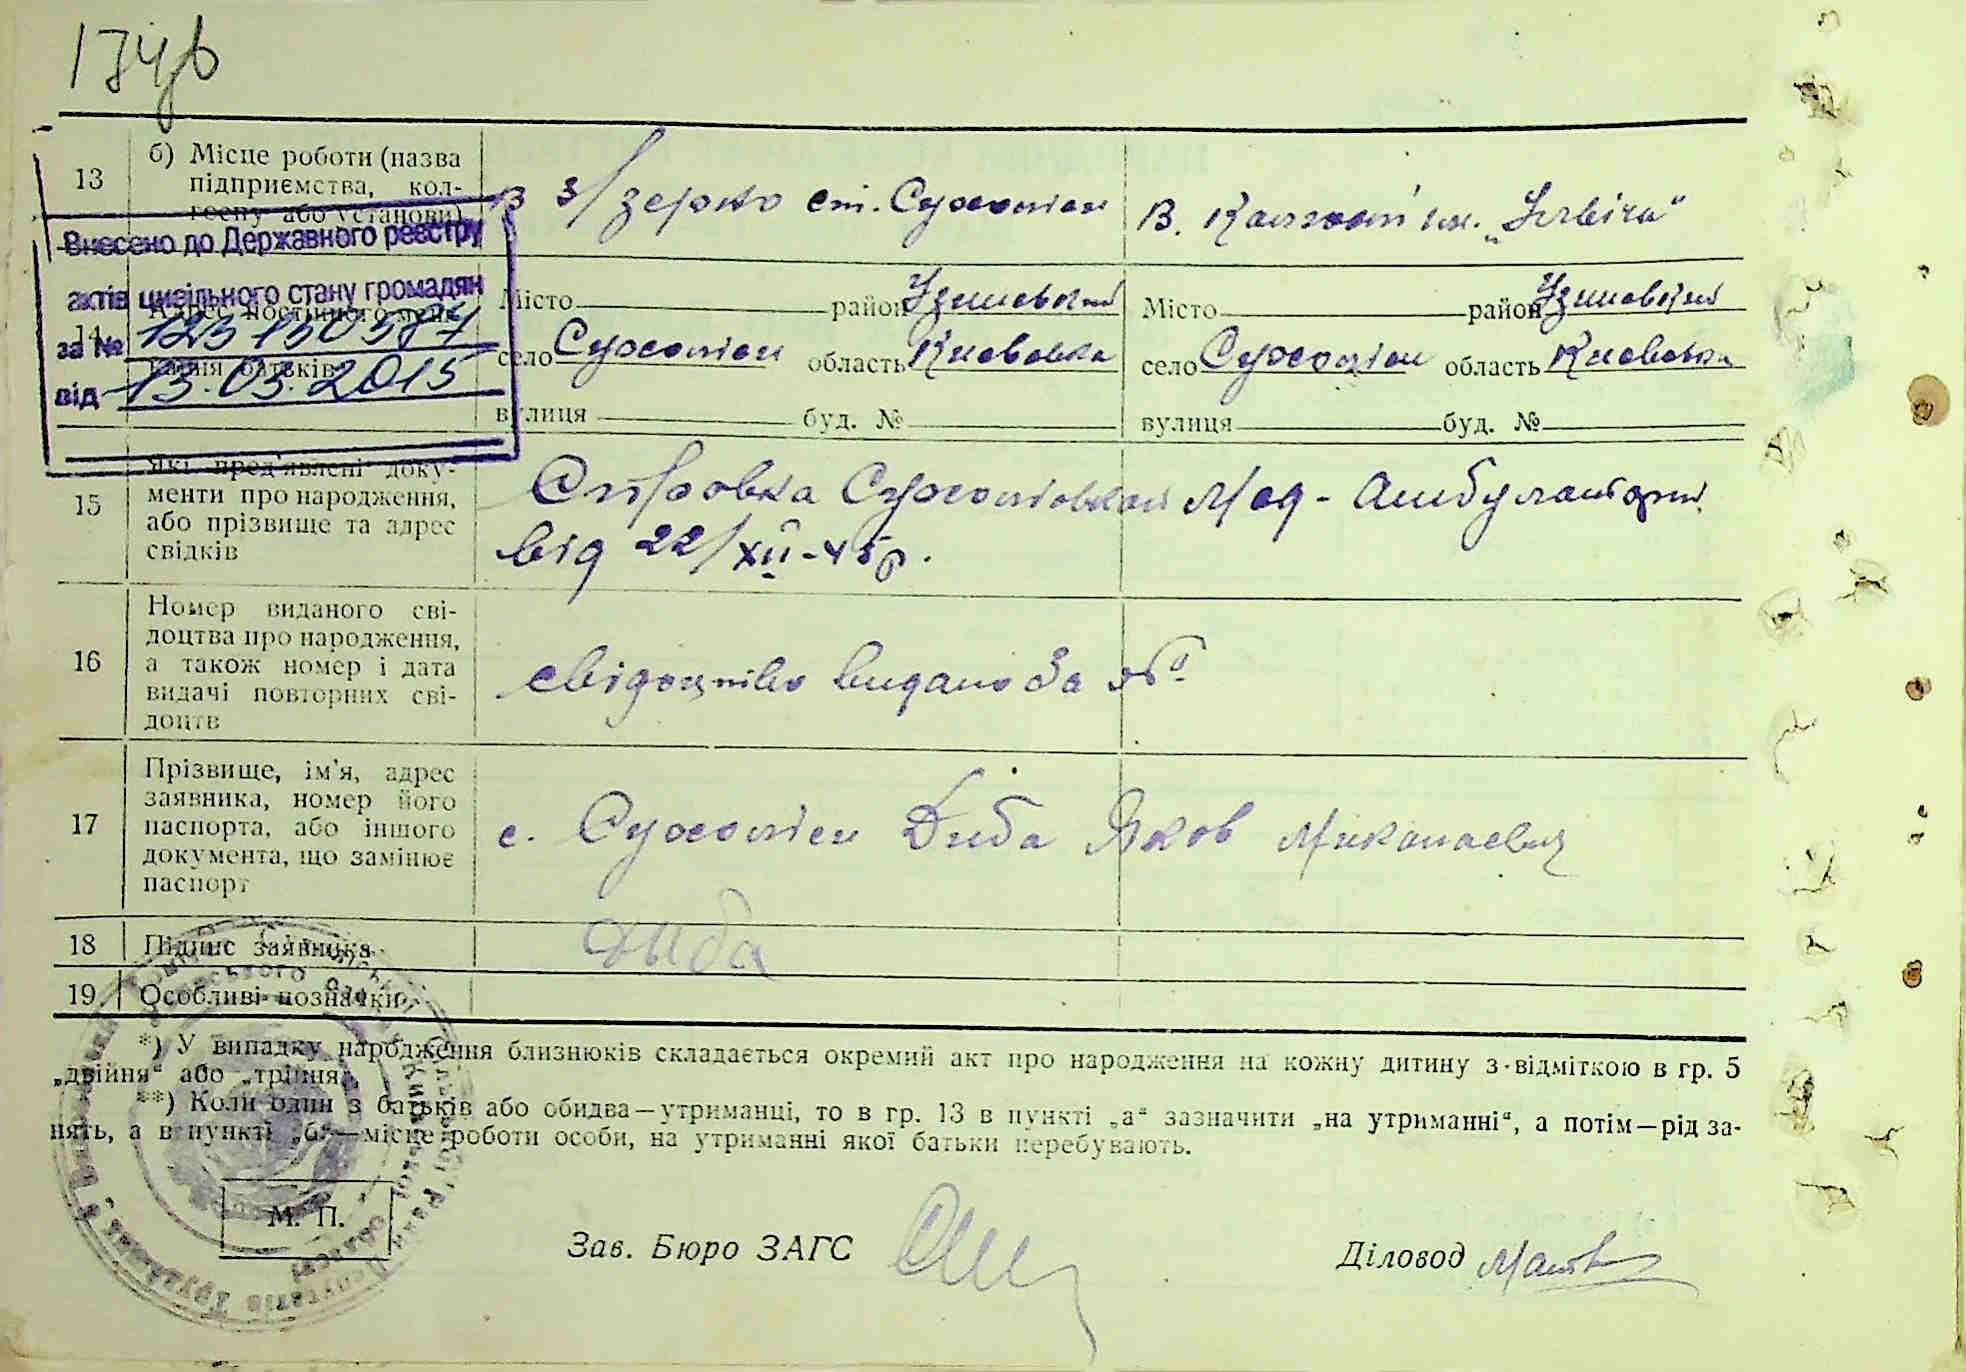 174 в
13
б) Місце роботи (назва
підприємства, кол-
госпу або установи)
В з/зерно ст. Сухоліси
В. Колгоспі ім. „Ілліча“
Внесено до Державного реєстру
актів цивільного стану громадян
за №
від 13.03.2015
14
Адрес постійного меш-
кання батьків
Місто район Узинский
село Сухоліси область Киевська
вулиця буд. №
Місто район Узинский
село Сухоліси область Киевська
вулиця буд. №
15
Які пред'явлені доку-
менти про народження,
або прізвище та адрес
свідків
Справка Сухоліської Мед-Амбулаторії
від 22/XII-45р.
16
Номер виданого сві-
доцтва про народження,
а також номер і дата
видачі повторних сві-
доцтв
свідоцтво видано за №
17
Прізвище, ім'я, адрес
заявника, номер його
паспорта, або іншого
документа, що замінює
паспорт
с. Сухоліси Диба Яков Миколаевич
18
Підпис заявника
Диба
19.
Особливі позначки
*) У випадку народження близнюків складається окремий акт про народження на кожну дитину з відміткою в гр. 5
„двійня“ або „трійня“.
**) Коли один з батьків або обидва—утриманці, то в гр. 13 в пункті „а“ зазначити „на утриманні“, а потім—рід за-
нять, а в пункті „б“—місце роботи особи, на утриманні якої батьки перебувають.
М. П.
Зав. Бюро ЗАГС
Діловод